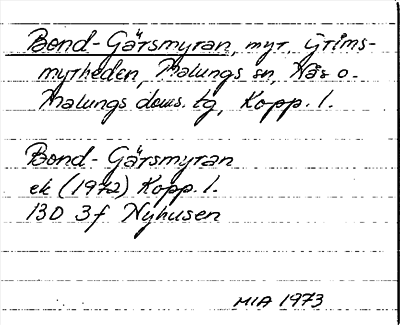 Bond-Gärsmyran, myr, Grims-
myrheden, Malungs sn, Nås o.
Malungs doms. tg, Kopp. l.
Bond-Gärsmyran
ek (1972) Kopp. l.
13D 3f Nyhusen
MIA 1973